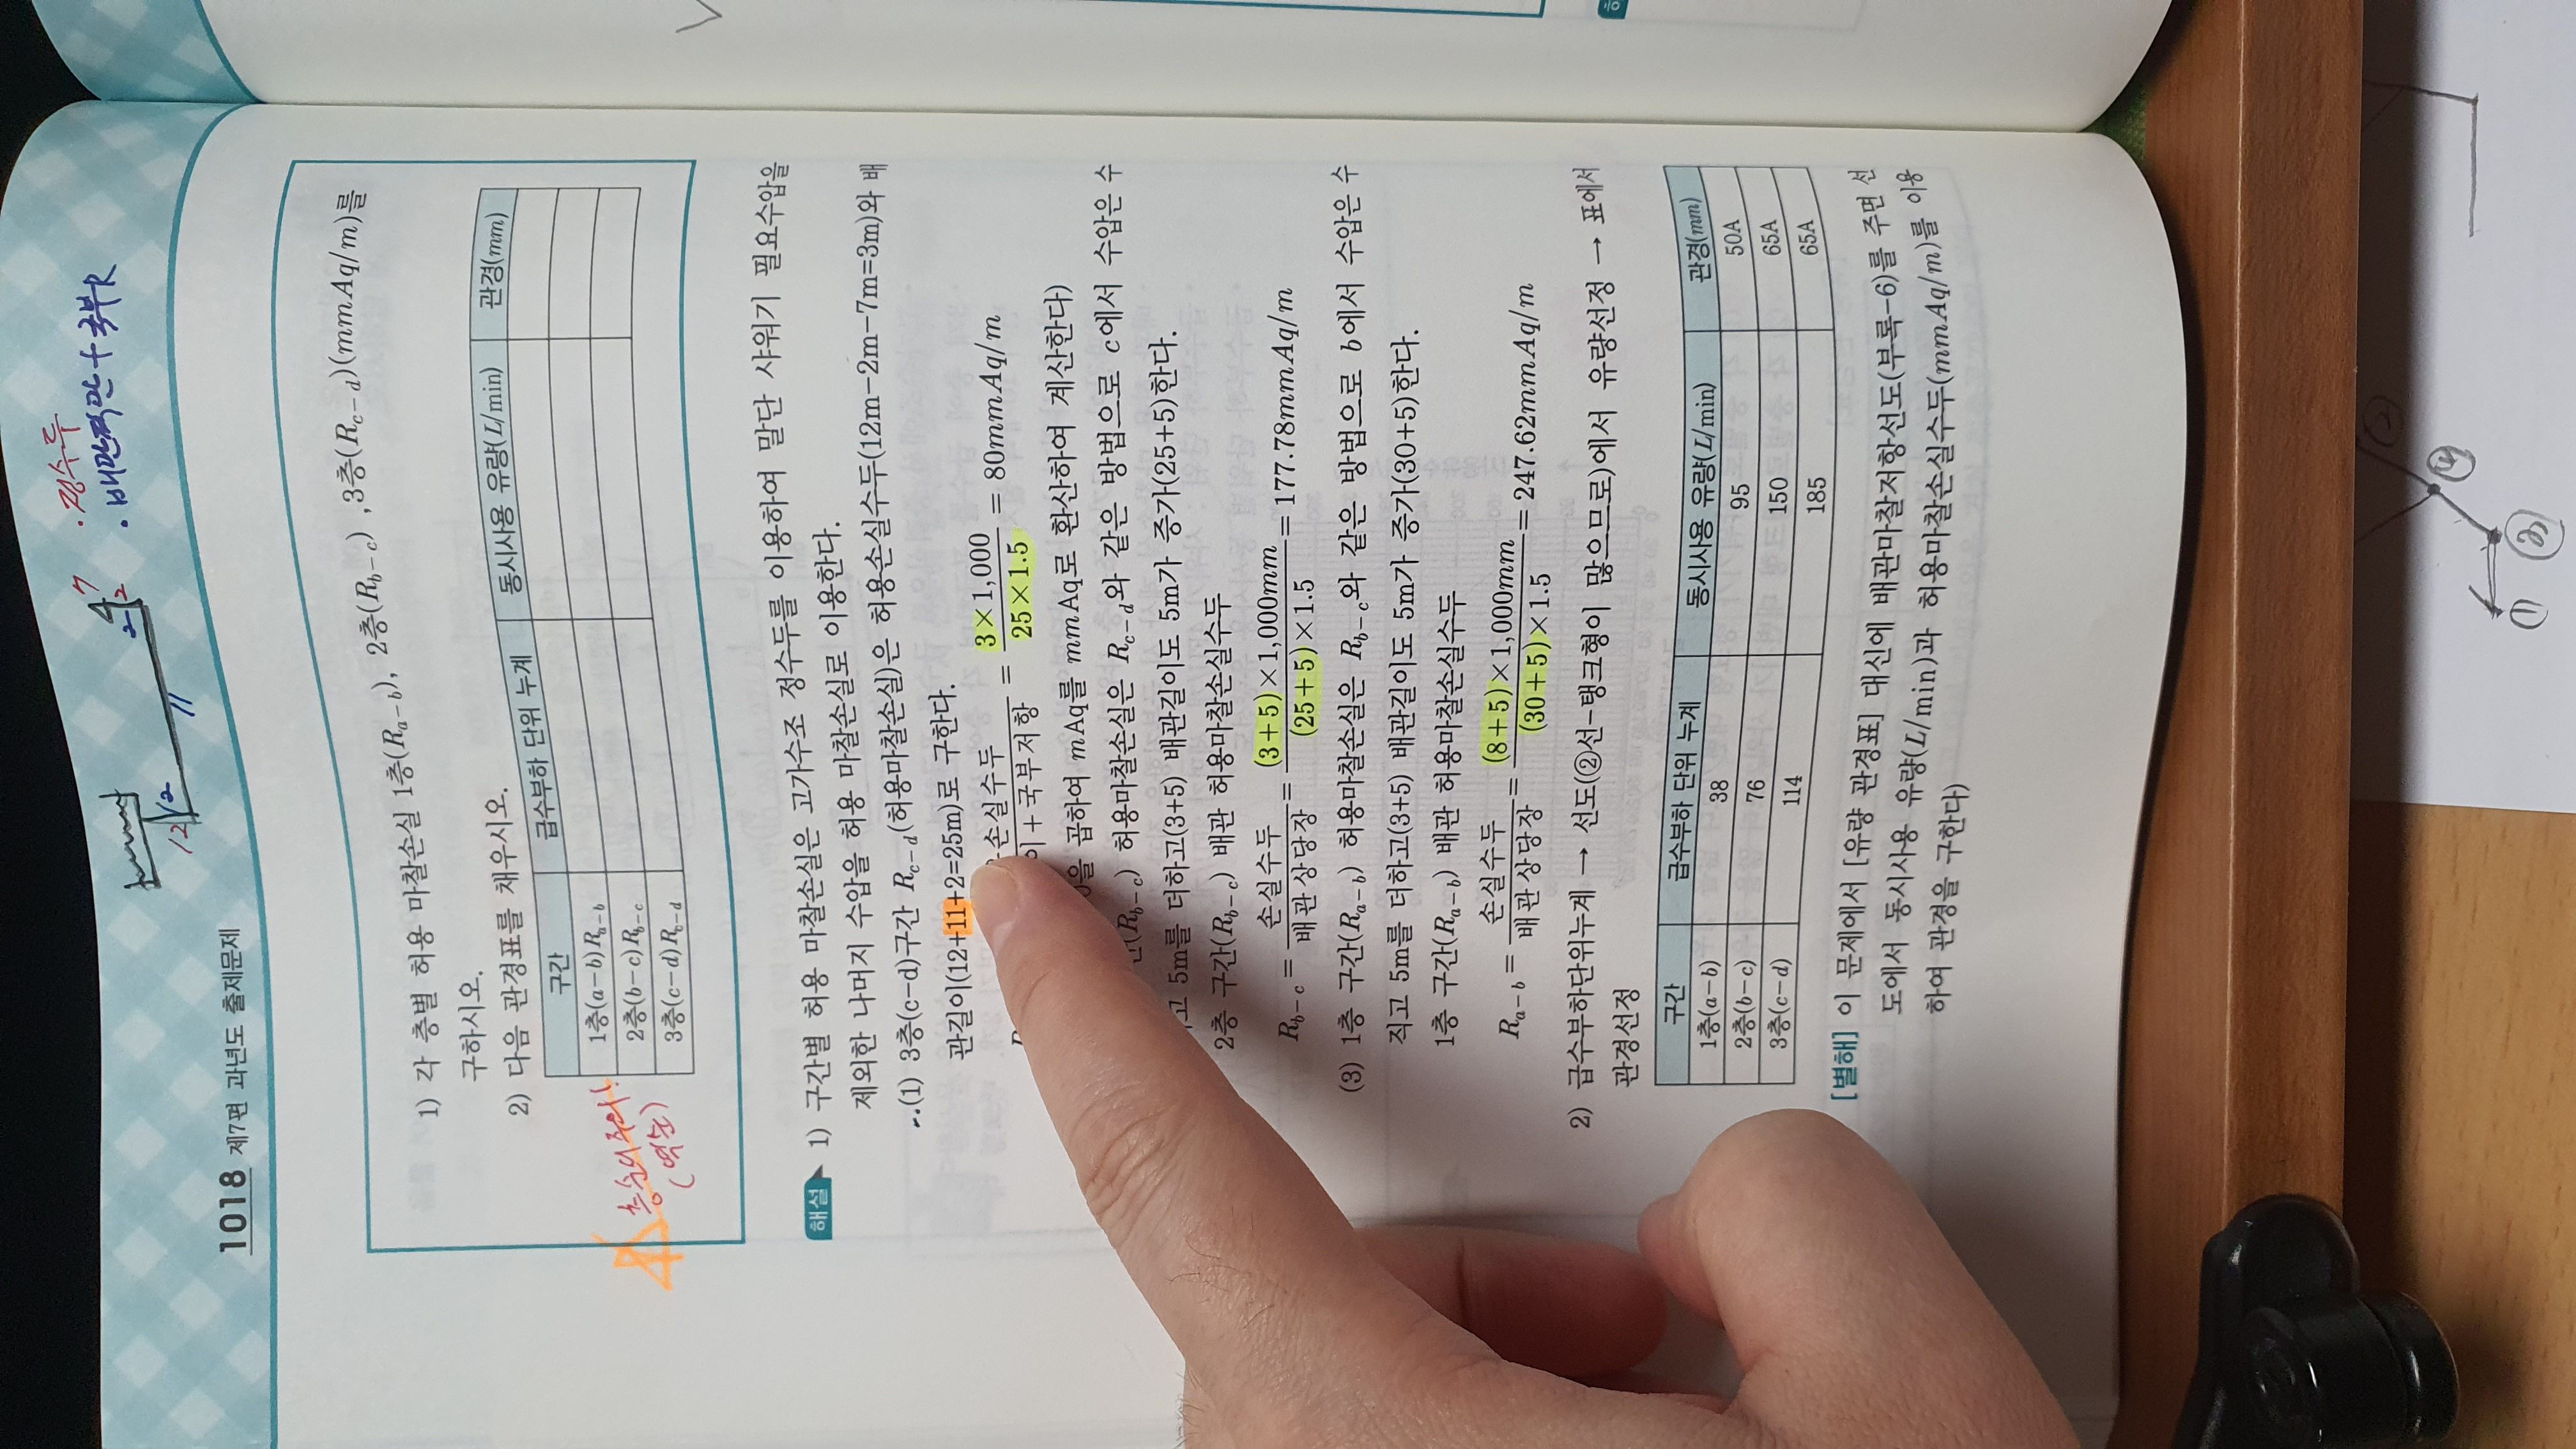 1018 제7편 과년도 출제문제
12
2
11
2
2
7
· 정수두
· 배관직관 + 국부R
1) 각 층별 허용 마찰손실 1층(Ra-b), 2층(Rb-c) ,3층(Rc-d)(mmAq/m)를
구하시오.
2) 다음 관경표를 채우시오.
구간 급수부하 단위 누계 동시사용 유량(L/min) 관경(mm)
1층(a-b)Ra-b
2층(b-c)Rb-c
3층(c-d)Rc-d
층수의 주의!
(역순)
해설 1) 구간별 허용 마찰손실은 고가수조 정수두를 이용하여 말단 샤워기 필요수압을
제외한 나머지 수압을 허용 마찰손실로 이용한다.
∴(1) 3층(c-d)구간 Rc-d(허용마찰손실)은 허용손실수두(12m-2m-7m=3m)와 배
관길이(12+11+2=25m)로 구한다.
손실수두 / 이+국부저항 = 3×1,000 / 25×1.5 = 80mmAq/m
을 곱하여 mAq를 mmAq로 환산하여 계산한다)
(Rb-c) 허용마찰손실은 Rc-d와 같은 방법으로 c에서 수압은 수
고 5m를 더하고(3+5) 배관길이도 5m가 증가(25+5)한다.
2층 구간(Rb-c) 배관 허용마찰손실수두
Rb-c = 손실수두 / 배관상당장 = (3+5)×1,000mm / (25+5)×1.5 = 177.78mmAq/m
(3) 1층 구간(Ra-b) 허용마찰손실은 Rb-c와 같은 방법으로 b에서 수압은 수
직고 5m를 더하고(3+5) 배관길이도 5m가 증가(30+5)한다.
1층 구간(Ra-b) 배관 허용마찰손실수두
Ra-b = 손실수두 / 배관상당장 = (8+5)×1,000mm / (30+5)×1.5 = 247.62mmAq/m
2) 급수부하단위누계 → 선도(②선-탱크형이 많으므로)에서 유량선정 → 표에서
관경선정
구간 급수부하 단위 누계 동시사용 유량(L/min) 관경(mm)
1층(a-b) 38 95 50A
2층(b-c) 76 150 65A
3층(c-d) 114 185 65A
[별해] 이 문제에서 [유량 관경표] 대신에 배관마찰저항선도(부록-6)를 주면 선
도에서 동시사용 유량(L/min)과 허용마찰손실수두(mmAq/m)를 이용
하여 관경을 구한다)
(1)